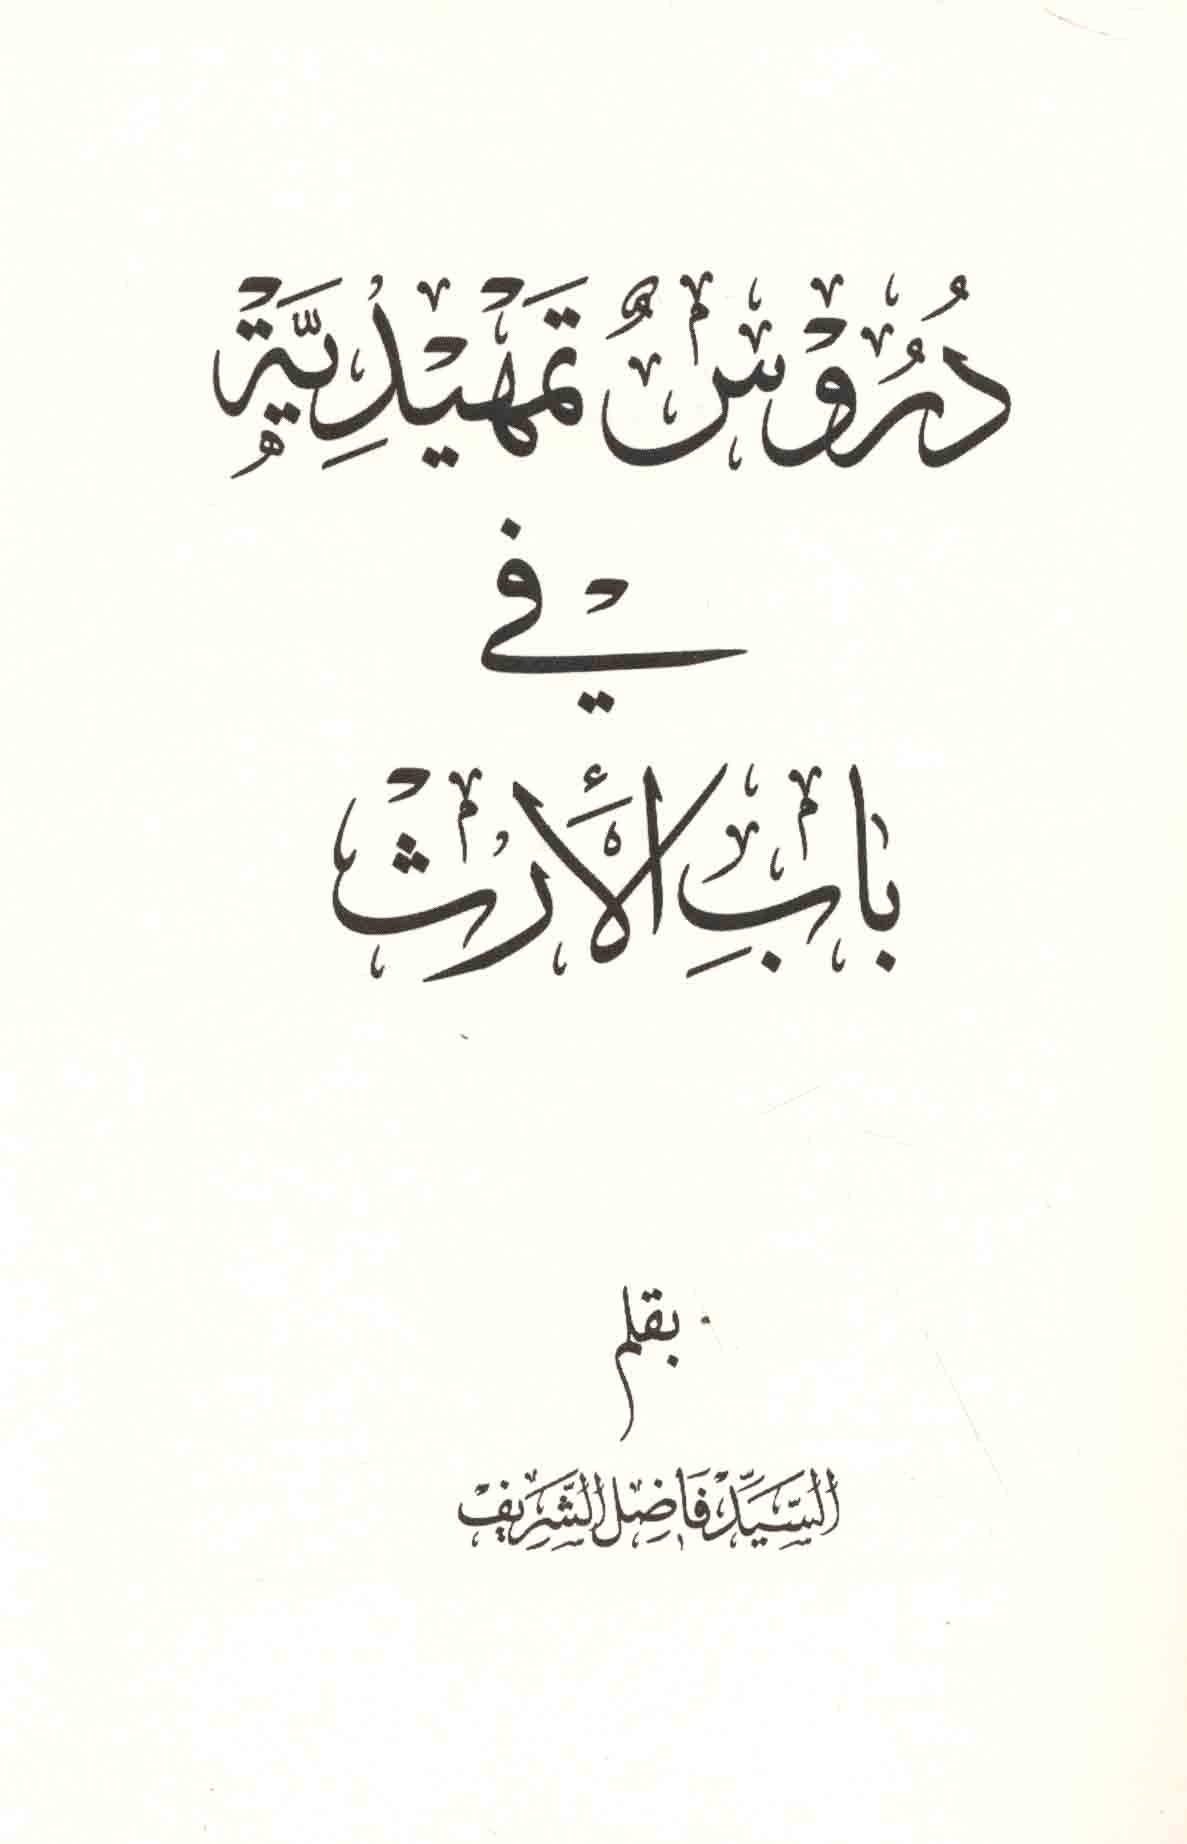 دُرُوْسٌ تَمْهِيْدِيَّةٌ
في
بابِ الأَرْث
بقلم
السَّيِّد فَاضِل الشَّرِيف